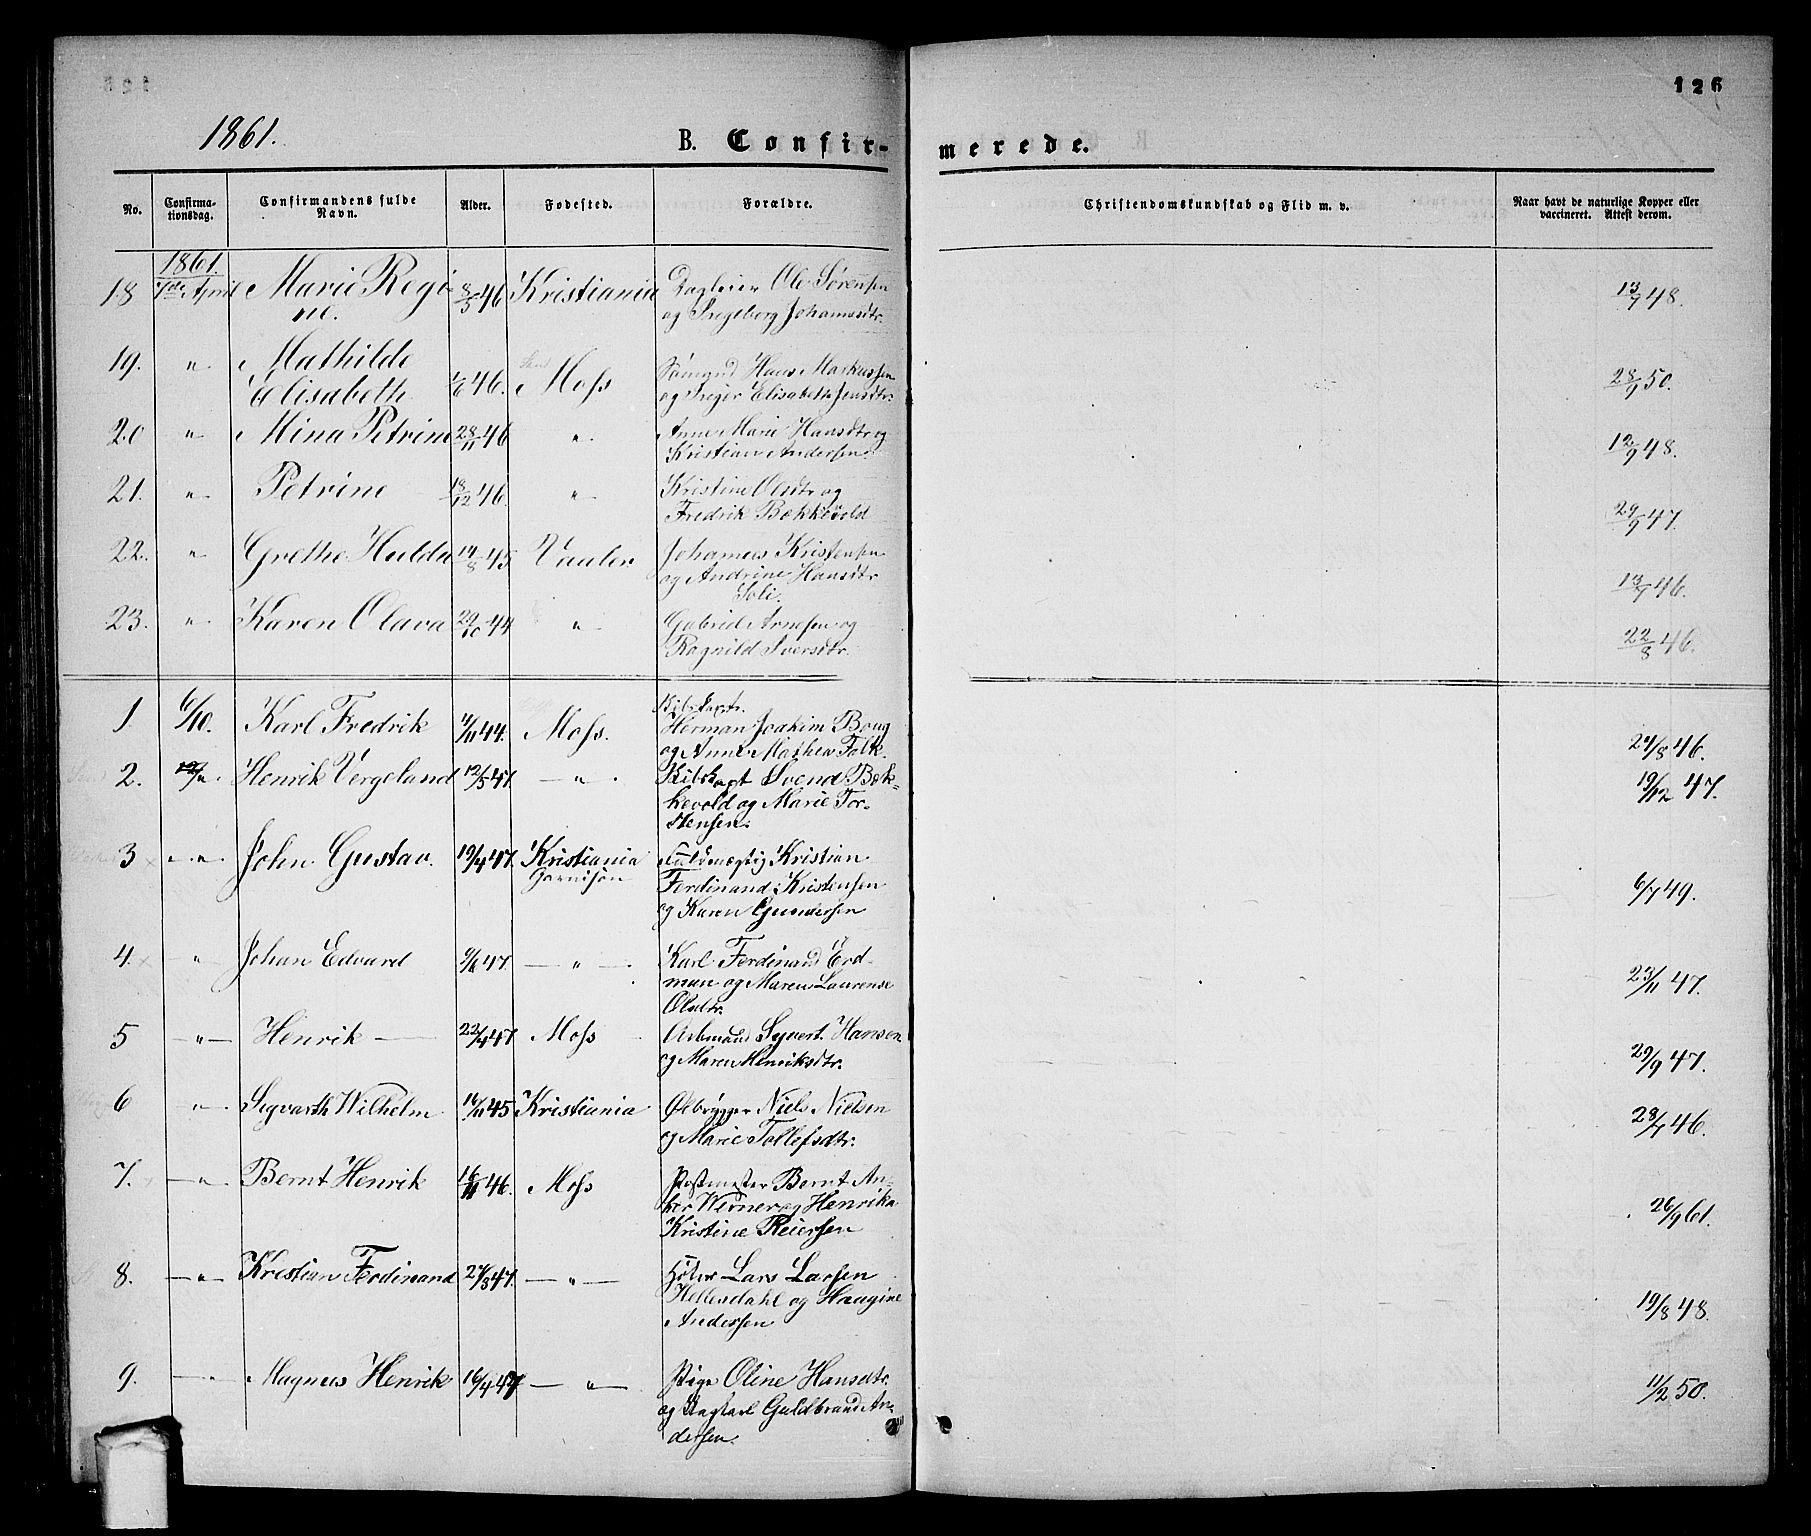 126
1861.
B. Confir-
merede.
No.
Confirma-
tionsdag.
Confirmandens fulde
Navn.
Alder.
Fødested.
Forældre.
Christendomskundskab og Flid m. v.
Naar havt de naturlige Kopper eller
vaccineret. Attest derom.
1861.
18 7de April Marie Regi- 8/5 46 Kristiania Dagleier Ole Sørensen 13/7 48.
ne. og Ingeborg Johannesdtr.
19. " Mathilde Moss Hans Markussen 28/9 50.
Elisabeth 46. og Inger Elisabeth Jensdtr.
20 " Mina Petrine 28/11 46 " Anne Marie Hansdtr og 12/9 48.
Kristian Andersen.
21. " Petrine 18/12 46. " Kristine Olsdtr og 29/9 47.
Fredrik Bækkevold
22. " Grethe Hulda 14/8 45 Vaaler Johannes Kristensen 13/7 46.
og Andrine Hansdtr
Soli.
23. " Karen Olava 29/10 44 " Gabriel Arnesen og 22/8 46.
Ragnild Iversdtr.
1. 6/10. Karl Fredrik 11/11 44. Moss. Skibskapt.
Herman Joakim Boug
og Anne Mathea Falk. 24/8 46.
2. " Henrik Vergeland 12/5 47 — " Skibskapt Svend Bæk- 19/12 47.
kevold og Marie Tor-
stensen.
3 " John Gustav. 19/4 47. Kristiania Fuldmægtig Kristian
Garnison Ferdinand Kristensen 6/7 49.
og Karen Gundersen
4. " Johan Edvard 9/6 47. — " — Karl Ferdinand Erd-
man og Maren Laurense 23/11 47.
Olsdtr.
5 — " — Henrik — 22/4 47 Moss Arbmand Syvert Hansen
og Maren Henriksdtr. 29/9 47.
6 " Sigvarth Wilhelm 45 Kristiania Ølbrygger Niels Nielsen 28/7 46.
og Marie Tollefsdtr.
7. — " Bernt Henrik 16/11 46. Moss Postmester Bernt An-
ker Werner og Henrika 26/9 61.
Kristine Reiersen
8. — " — Kristian Ferdinand 27/3 47. — " — Lars Larsen
Hellesdahl og Haagine 19/8 48.
Andersen
9. — " — Magnus Henrik 16/4 47 — " — Pige Oline Hansdtr.
og Guldbrand An- 11/2 50.
dersen.